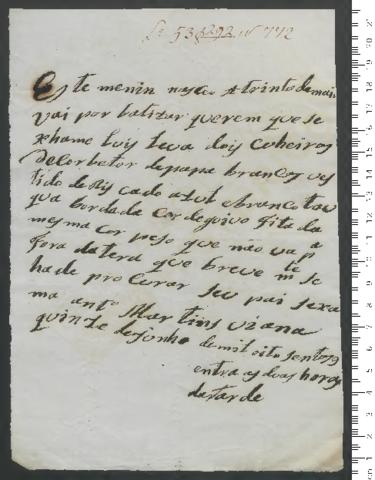 Este menin naseo atrinta de maio
vai por batizar querem que se
xhame luis leva dois Coheiros
de Corbetor de papa brancos ves
tido de Riscado azul e branco tou
qua bordada Cor de goivo fita da
mesma Cor peso que não va p
fora da tera que breve mte se
hade procurar seu pai se xa
ma anto Martins viana
quinze de Junho de mil oito sentos
entra as duas horas
da tarde